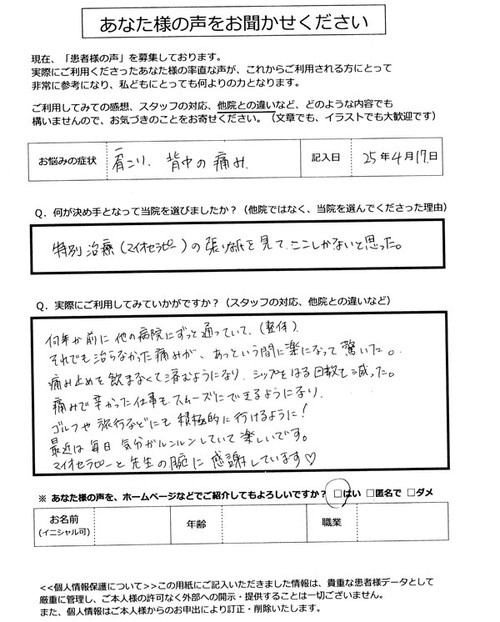 あなた様の声をお聞かせください
現在、「患者様の声」を募集しております。
実際にご利用くださったあなた様の率直な声が、これからご利用される方にとって
非常に参考になり、私どもにとっても何よりの力となります。
ご利用してみての感想、スタッフの対応、他院との違いなど、どのような内容でも
構いませんので、お気づきのことをお寄せください。（文章でも、イラストでも大歓迎です）
お悩みの症状 肩こり、背中の痛み 記入日 25年4月17日
Q．何が決め手となって当院を選びましたか？（他院ではなく、当院を選んでくださった理由）
特別治療（マイオセラピー）の張り紙を見て、ここしかないと思った。
Q．実際にご利用してみていかがですか？（スタッフの対応、他院との違いなど）
何年か前に他の病院にずっと通っていて、（整体）
それでも治らなかった痛みが、あっという間に楽になって驚いた。
痛み止めを飲まなくて済むようになり、シップをはる回数も減った。
痛みで辛かった仕事もスムーズにできるようになり、
ゴルフや旅行などにも積極的に行けるように！
最近は毎日気分がルンルンしていて楽しいです。
マイオセラピーと先生の腕に感謝しています♡
※ あなた様の声を、ホームページなどでご紹介してもよろしいですか？ □はい □匿名で □ダメ
お名前 年齢 職業
(イニシャル可)
<<個人情報保護について>>この用紙にご記入いただきました情報は、貴重な患者様データとして
厳重に管理し、ご本人様の許可なく外部への開示・提供することは一切ございません。
また、個人情報はご本人様からのお申出により訂正・削除いたします。